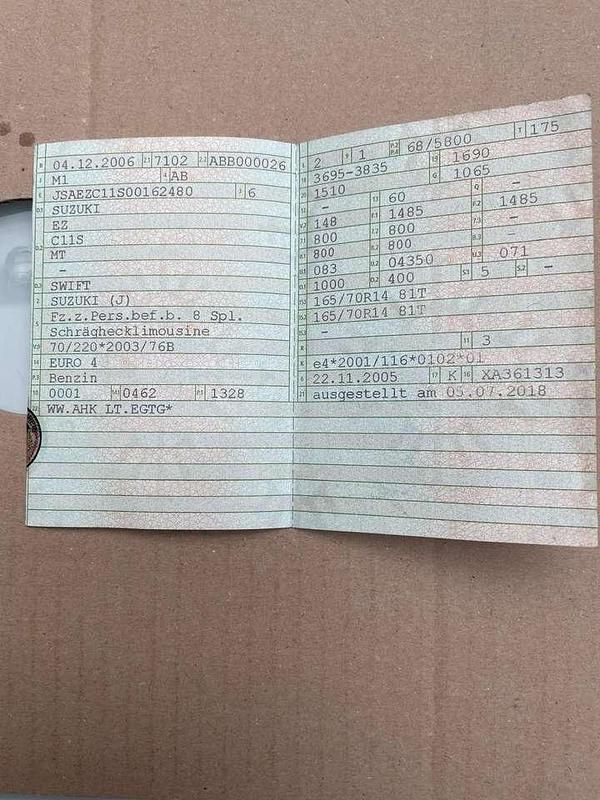 04.12.2006 2.1 7102 2.2 ABB000026
M1 AB
JSAEZC11S00162480 6
SUZUKI
EZ
C11S
MT
–
SWIFT
SUZUKI (J)
Fz.z.Pers.bef.b. 8 Spl.
Schräghecklimousine
70/220*2003/76B
EURO 4
Benzin
0001 0462 P.1 1328
WW.AHK LT.EGTG*
2 9 1 68/5800 T 175
3695-3835 1690
1510 G 1065
– 60 –
148 1485 1485
800 800 –
800 800
083 04350 071
1000 400 S.1 5 S.2 –
165/70R14 81T
165/70R14 81T
–
11 3
e4*2001/116*0102*01
22.11.2005 17 K 16 XA361313
ausgestellt am 05.07.2018